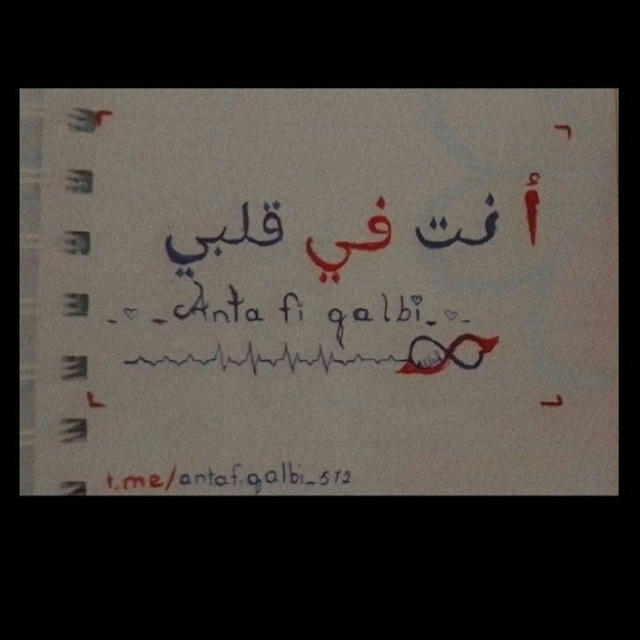 أنت في قلبي
Anta fi qalbi
t.me/antafiqalbi_572